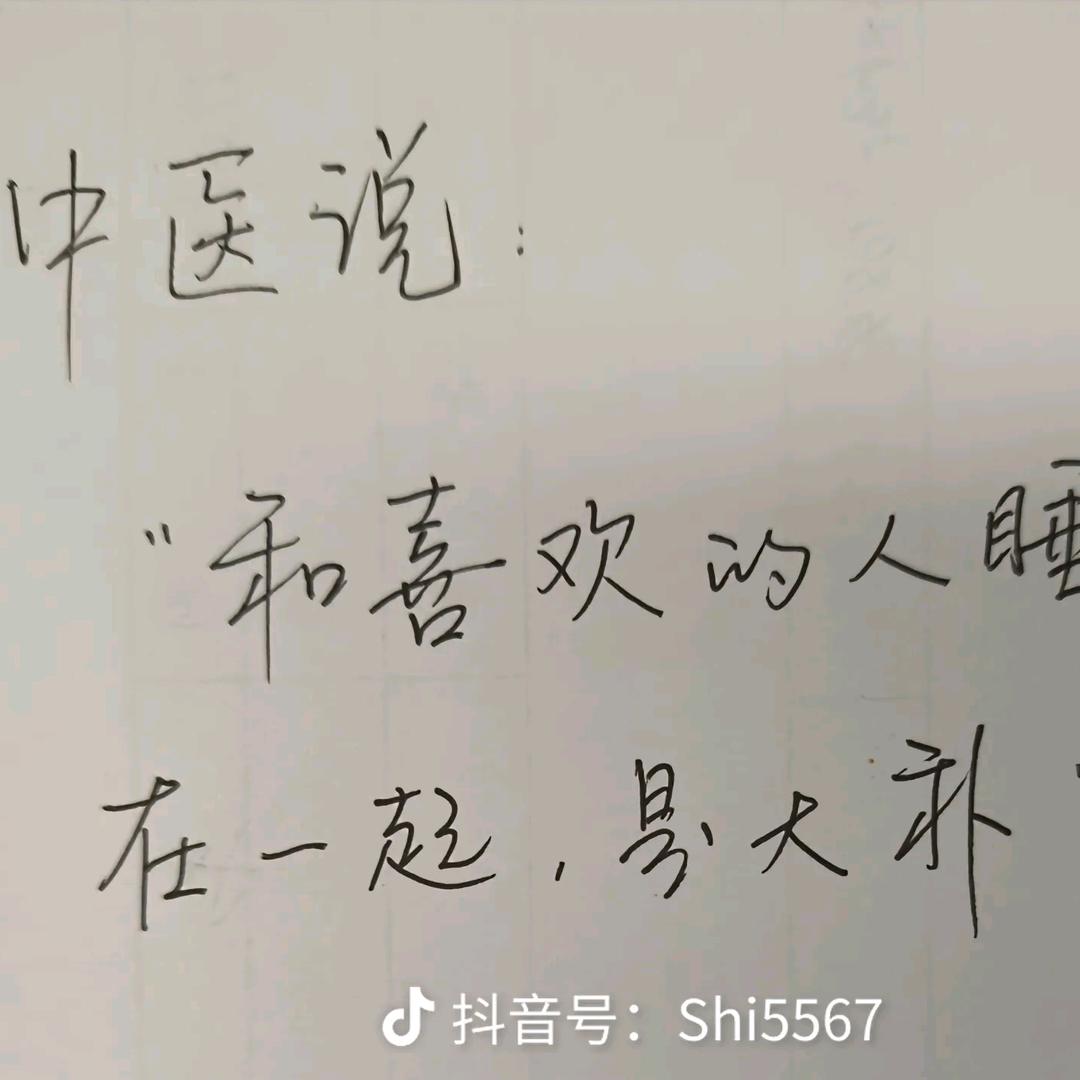 中医说:
“和喜欢的人睡
在一起,是大补
抖音号：Shi5567